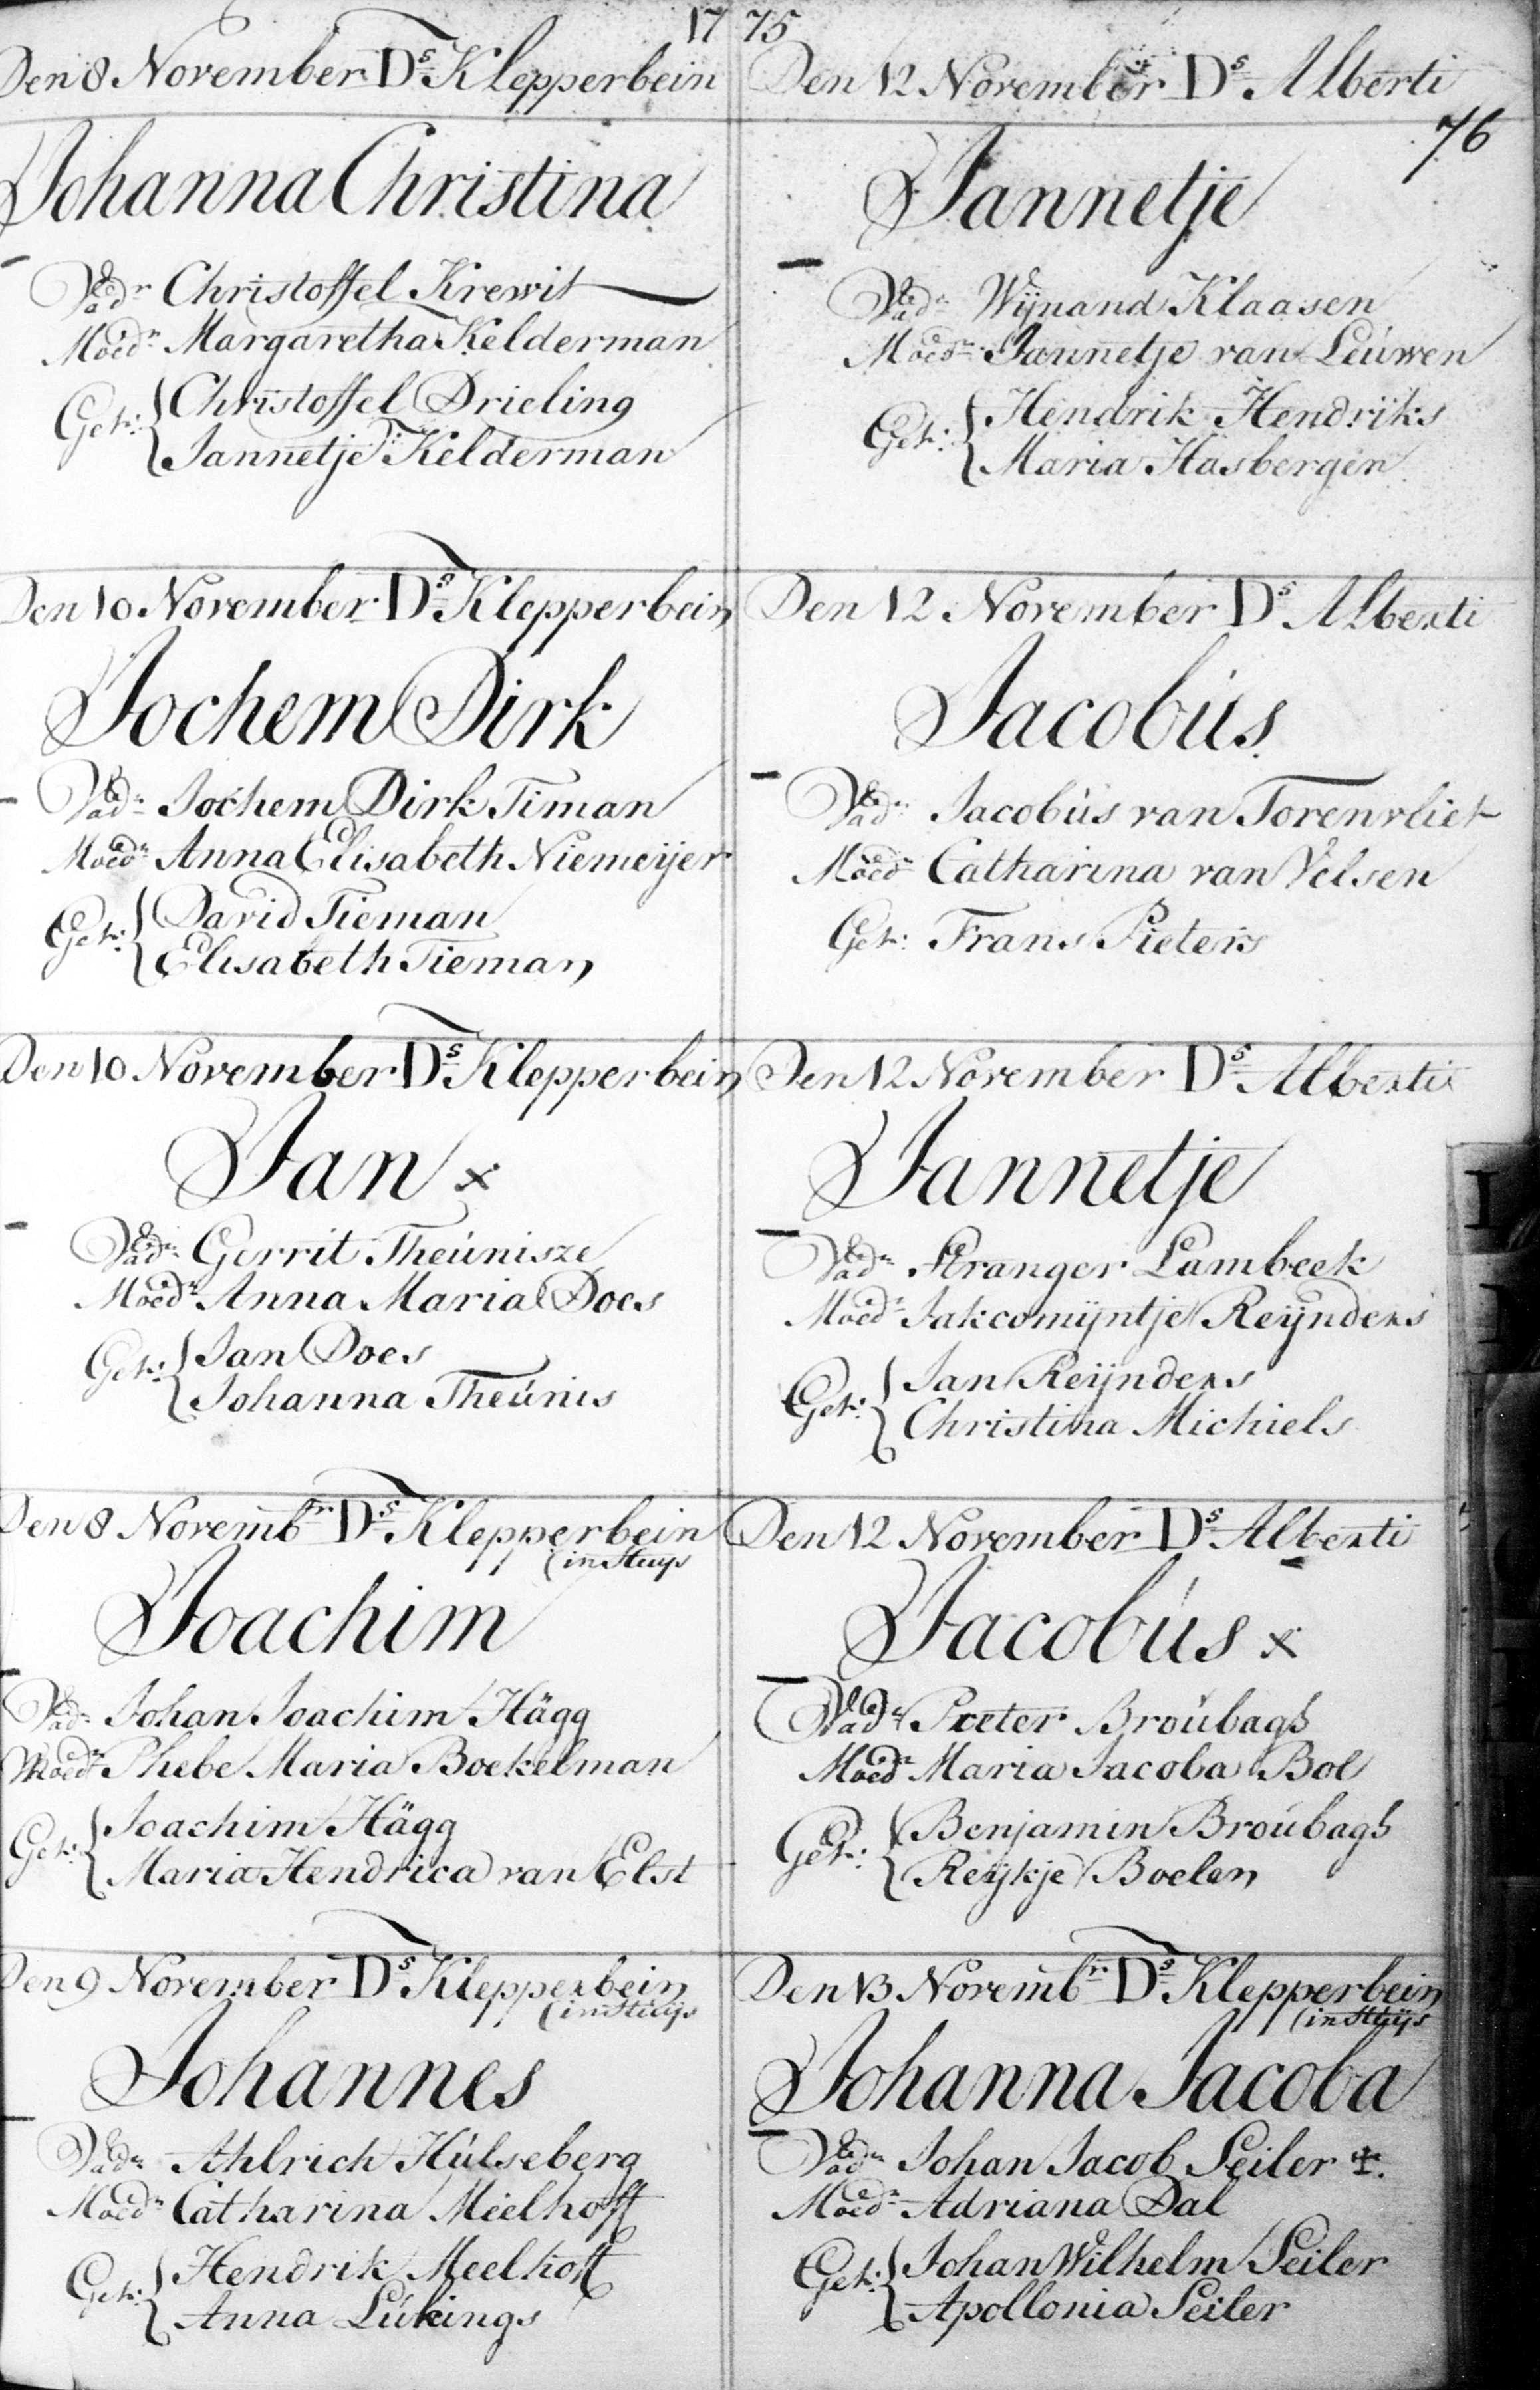 1775
76
Den 8 November Ds Klepperbein
Johanna Christina
Vadr Christoffel Krewit
Moedr Margaretha Kelderman
Get: Christoffel Drieling
Jannetje Kelderman
Den 10 November Ds Klepperbein
Jochem Dirk
Vadr Jochem Dirk Timan
Moedr Anna Elisabeth Niemeijer
Get: David Tieman
Elisabeth Tieman
Den 10 November Ds Klepperbein
Jan x
Vadr Gerrit Theúnisze
Moedr Anna Maria Does
Get: Jan Does
Johanna Theúnis
Den 8 Novembr Ds Klepperbein
(in Huys
Joachim
Vadr Johan Joachim Hägg
Moedr Phebe Maria Boekelman
Get: Joachim Hägg
Maria Hendrica van Elst
Den 9 November Ds Klepperbein
(in Huijs
Johannes
Vadr Ahlrich Húlseberg
Moedr Catharina Mielhoff
Get: Hendrik Meelhoff
Anna Lúkings
Den 12 November Ds Alberti
Jannetje
Vadr Wijnand Klaasen
Moedr Jannetje van Leúwen
Get: Hendrik Hendriks
Maria Hasbergen
Den 12 November Ds Alberti
Jacobús
Vadr Jacobús van Torenvliet
Moedr Catharina van Velsen
Get: Frans Pieters
Den 12 November Ds Alberti
Jannetje
Vadr Stranger Lambeek
Moedr Jakcomijntje Reijnders
Get: Jan Reijnders
Christina Michiels
Den 12 November Ds Alberti
Jacobús x
Vadr Pieter Broúbagh
Moedr Maria Jacoba Bol
Get: Benjamin Broúbagh
Reijkje Boelen
Den 13 Novembr Ds Klepperbein
(in Huijs
Johanna Jacoba
Vadr Johan Jacob Seiler
Moedr Adriana Dal
Get: Johan Wilhelm Seiler
Apollonia Seiler